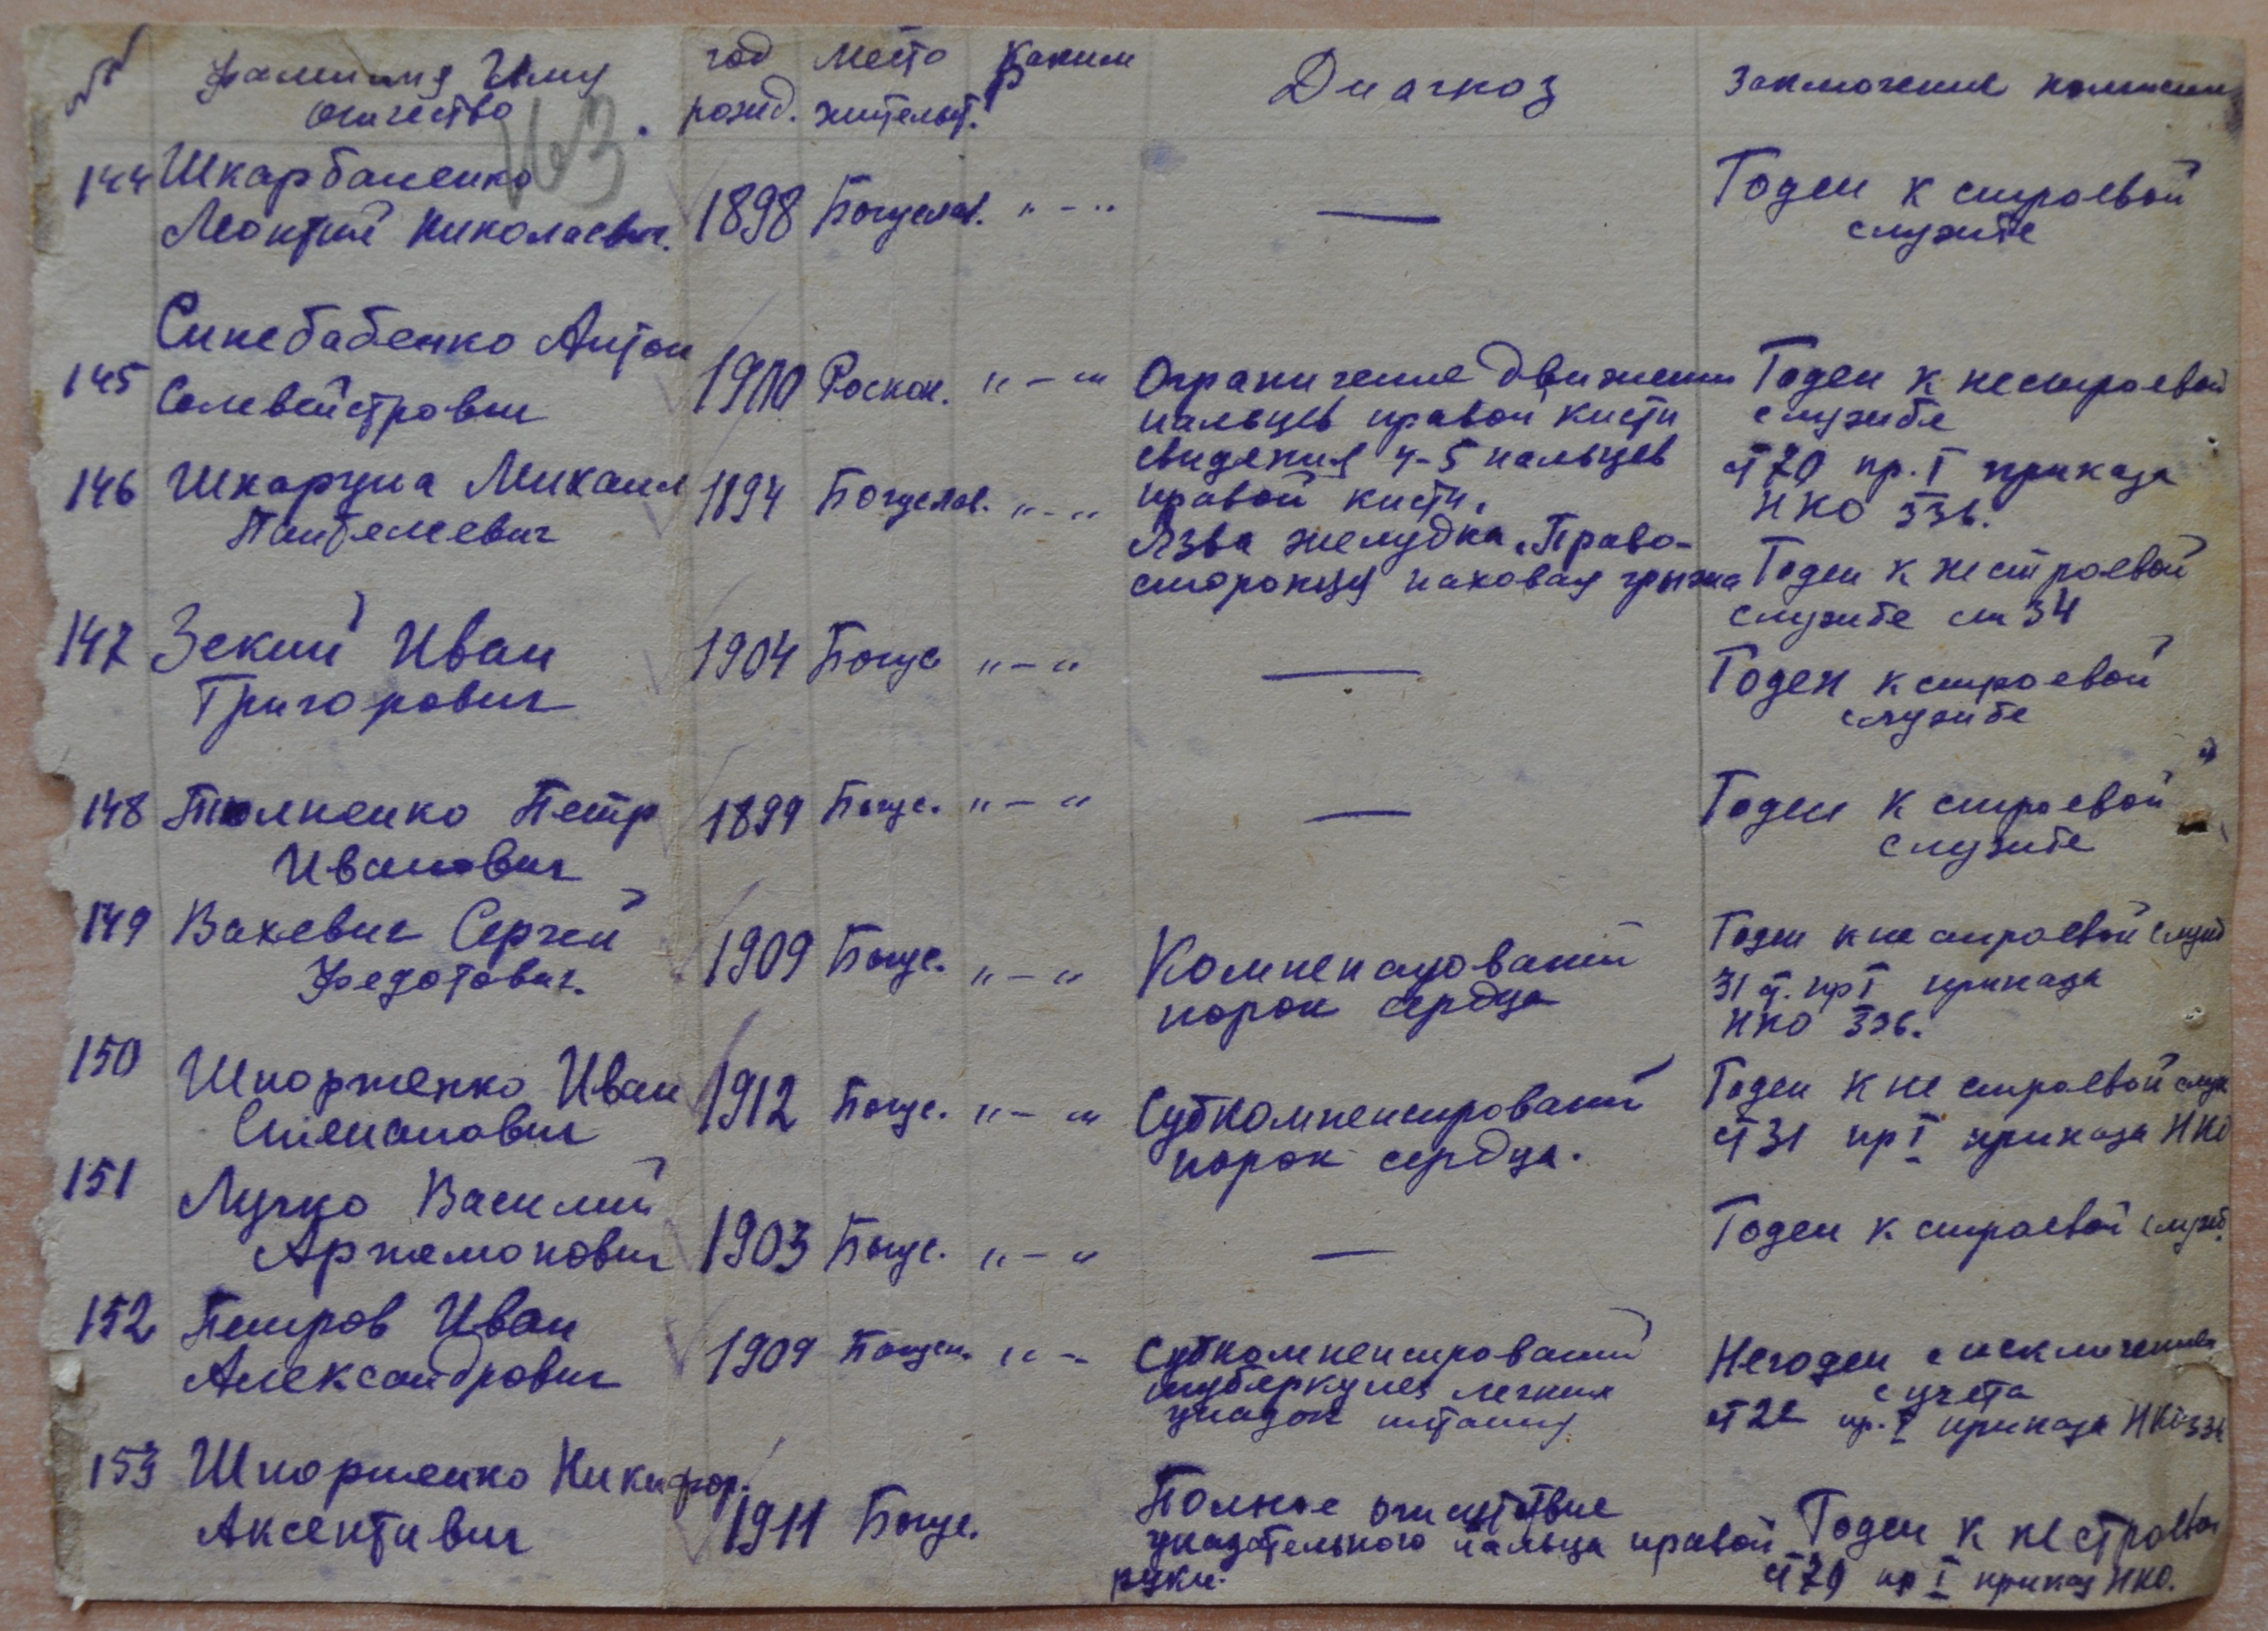 №№ Фамилия Имя отчество год рожд. место жительст. Каким Диагноз Заключение комисии
163
144 Шкарбаненко 1898 Богуслав. „ - „ — Годен к строевой
Леонтий Николаевич. службе
145 Синебабенко Антон 1900 Роскоп. „ - „ Ограничение движении Годен к нестроевой
Селвейстрович пальцев правой кисти службе
сведения 4-5 пальцев ст 70 пр. I приказа
правой кисти. НКО 336.
146 Шкарупа Михаил 1894 Богуслав. „ - „ Язва желудка. Право- Годен к нестроевой
Пантелеевич стороняя паховая грыжа службе ст 34
147 Зекий Иван 1904 Богус „ - „ — Годен к строевой
Григорович службе
148 Петр 1899 Богус. „ - „ — Годен к строевой
Иванович службе
149 Вахевич Сергей 1909 Богус. „ - „ Годен к не строевой служб
Федотович. порок сердца 31 ст. пр I приказа
НКО 336.
150 Шпортенко Иван 1912 Богус. „ - „ Субкомпенсированый Годен к не строевой служ
Степанович порок сердца. ст 31 пр I приказа НКО
151 Лучко Василий 1903 Богус. „ - „ — Годен к строевой служб.
Артемонович
152 Петров Иван 1909 Богусл. „ - Субкомпенсированый Негоден с исключением
Александрович туберкулез легких с учета
упадок питания ст 22 пр. I приказа НКО 336
153 Шпортенко Никифор. 1911 Богус. Полное отсутствие Годен к не строевой
Аксентивич указательного пальца правой ст 70 пр I приказ НКО.
руки.